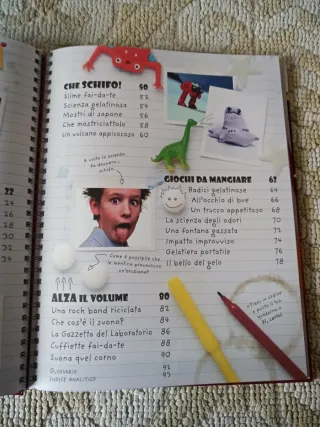 CHE SCHIFO! 50
Slime fai-da-te 52
Scienza gelatinosa 54
Mostri di sapone 56
Che mostriciattolo 58
Un vulcano appiccicoso 60
A volte la scienza fa davvero... schifo.
GIOCHI DA MANGIARE 62
Radici gelatinose 64
All'occhio di bue 66
Un trucco appetitoso 68
La scienza degli odori 70
Una fontana gassata 72
Impatto improvviso 74
Gelatiera portatile 76
Il bello del gelo 78
Come è possibile che
le mentine provochino
un'eruzione?
ALZA IL VOLUME 80
Una rock band riciclata 82
Che cos'è il suono? 84
La Gazzetta del Laboratorio 86
Cuffiette fai-da-te 88
Suona quel corno 90
GLOSSARIO 92
INDICE ANALITICO 93
22